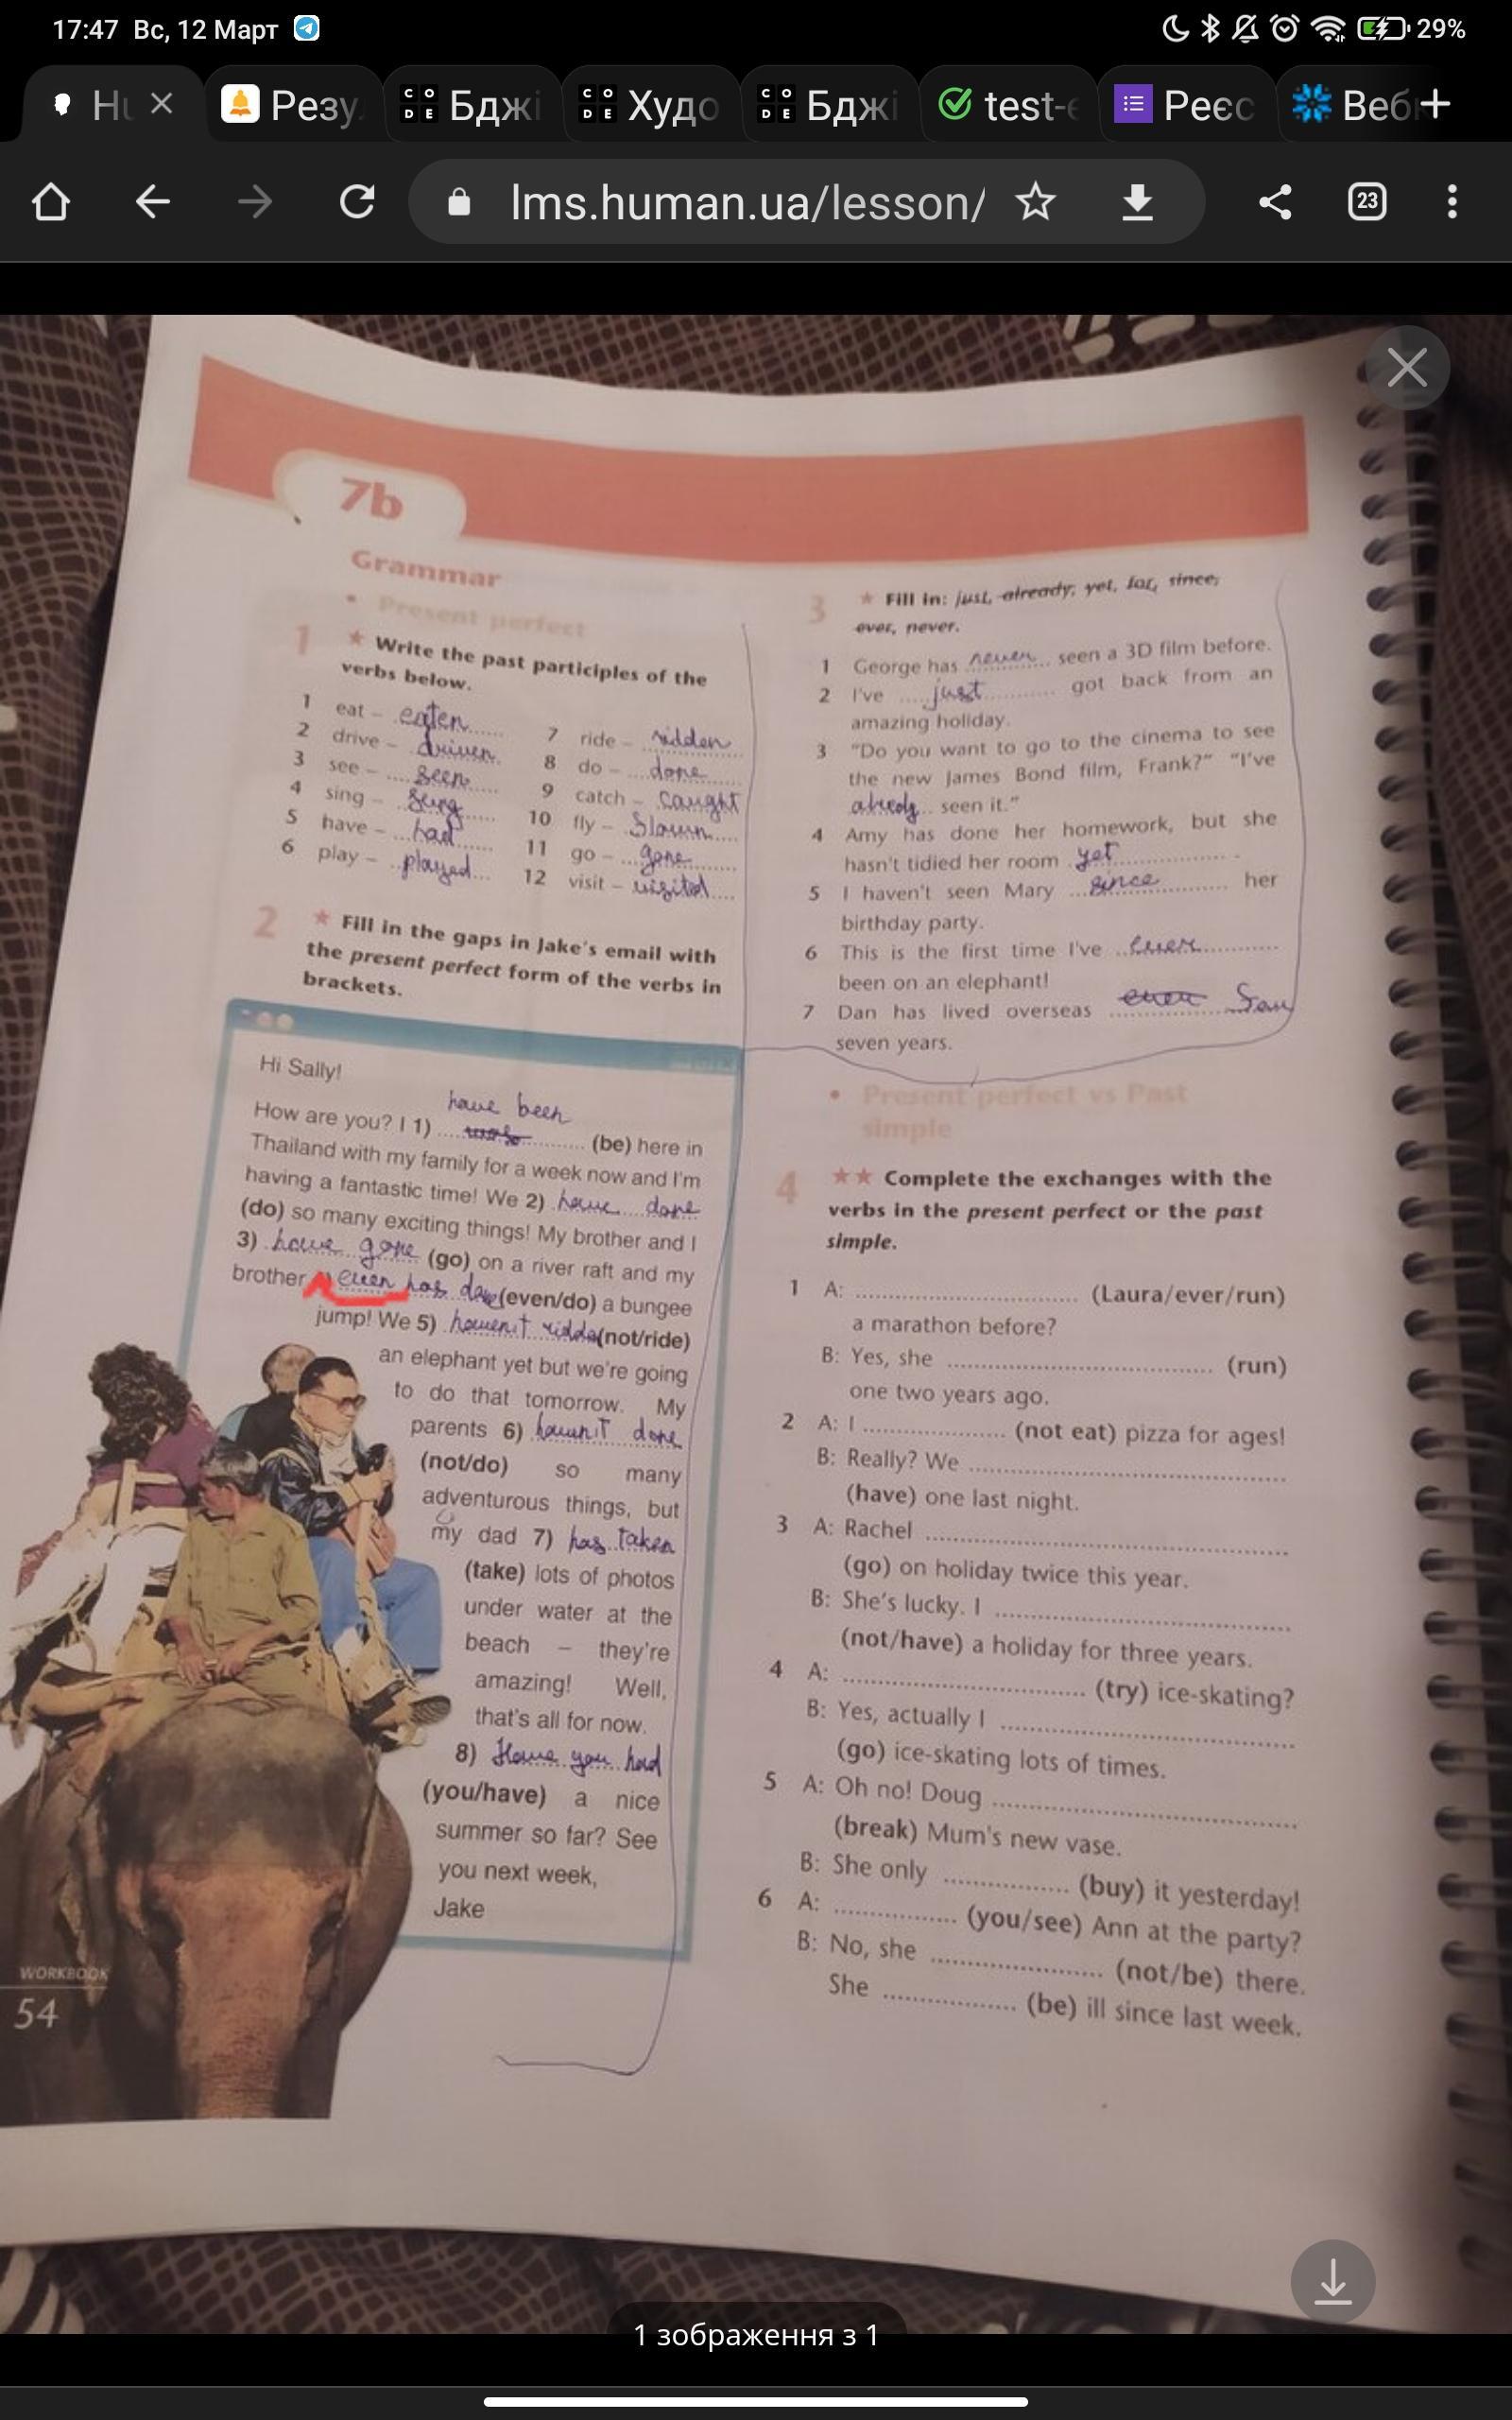 17:47 Вс, 12 Март
29%
Резу
CODE Бджі
CODE Худо
CODE Бджі
test-
Реєс
Веб
lms.human.ua/lesson/
23
7b
Grammar
• Present perfect
1 ★ Write the past participles of the
verbs below.
1 eat – eaten
2 drive – driven
3 see – seen
4 sing – sung
5 have – had
6 play – played
7 ride – ridden
8 do – done
9 catch – caught
10 fly – flown
11 go – gone
12 visit – visited
2 ★ Fill in the gaps in Jake's email with
the present perfect form of the verbs in
brackets.
Hi Sally!
have been
How are you? I 1) (be) here in
Thailand with my family for a week now and I'm
having a fantastic time! We 2) have done
(do) so many exciting things! My brother and I
3) have gone (go) on a river raft and my
brother even has done (even/do) a bungee
jump! We 5) haven't ridden (not/ride)
an elephant yet but we're going
to do that tomorrow. My
parents 6) haven't done
(not/do) so many
adventurous things, but
my dad 7) has taken
(take) lots of photos
under water at the
beach – they're
amazing! Well,
that's all for now.
8) Have you had
(you/have) a nice
summer so far? See
you next week,
Jake
WORKBOOK
54
3 ★ Fill in: just, already, yet, for, since,
ever, never.
1 George has never seen a 3D film before.
2 I've just got back from an
amazing holiday.
3 "Do you want to go to the cinema to see
the new James Bond film, Frank?" "I've
already seen it."
4 Amy has done her homework, but she
hasn't tidied her room yet.
5 I haven't seen Mary since her
birthday party.
6 This is the first time I've ever
been on an elephant!
7 Dan has lived overseas ever for
seven years.
• Present perfect vs Past
simple
4 ★★ Complete the exchanges with the
verbs in the present perfect or the past
simple.
1 A: (Laura/ever/run)
a marathon before?
B: Yes, she (run)
one two years ago.
2 A: I (not eat) pizza for ages!
B: Really? We
(have) one last night.
3 A: Rachel
(go) on holiday twice this year.
B: She's lucky. I
(not/have) a holiday for three years.
4 A: (try) ice-skating?
B: Yes, actually I
(go) ice-skating lots of times.
5 A: Oh no! Doug
(break) Mum's new vase.
B: She only (buy) it yesterday!
6 A: (you/see) Ann at the party?
B: No, she (not/be) there.
She (be) ill since last week.
1 зображення з 1